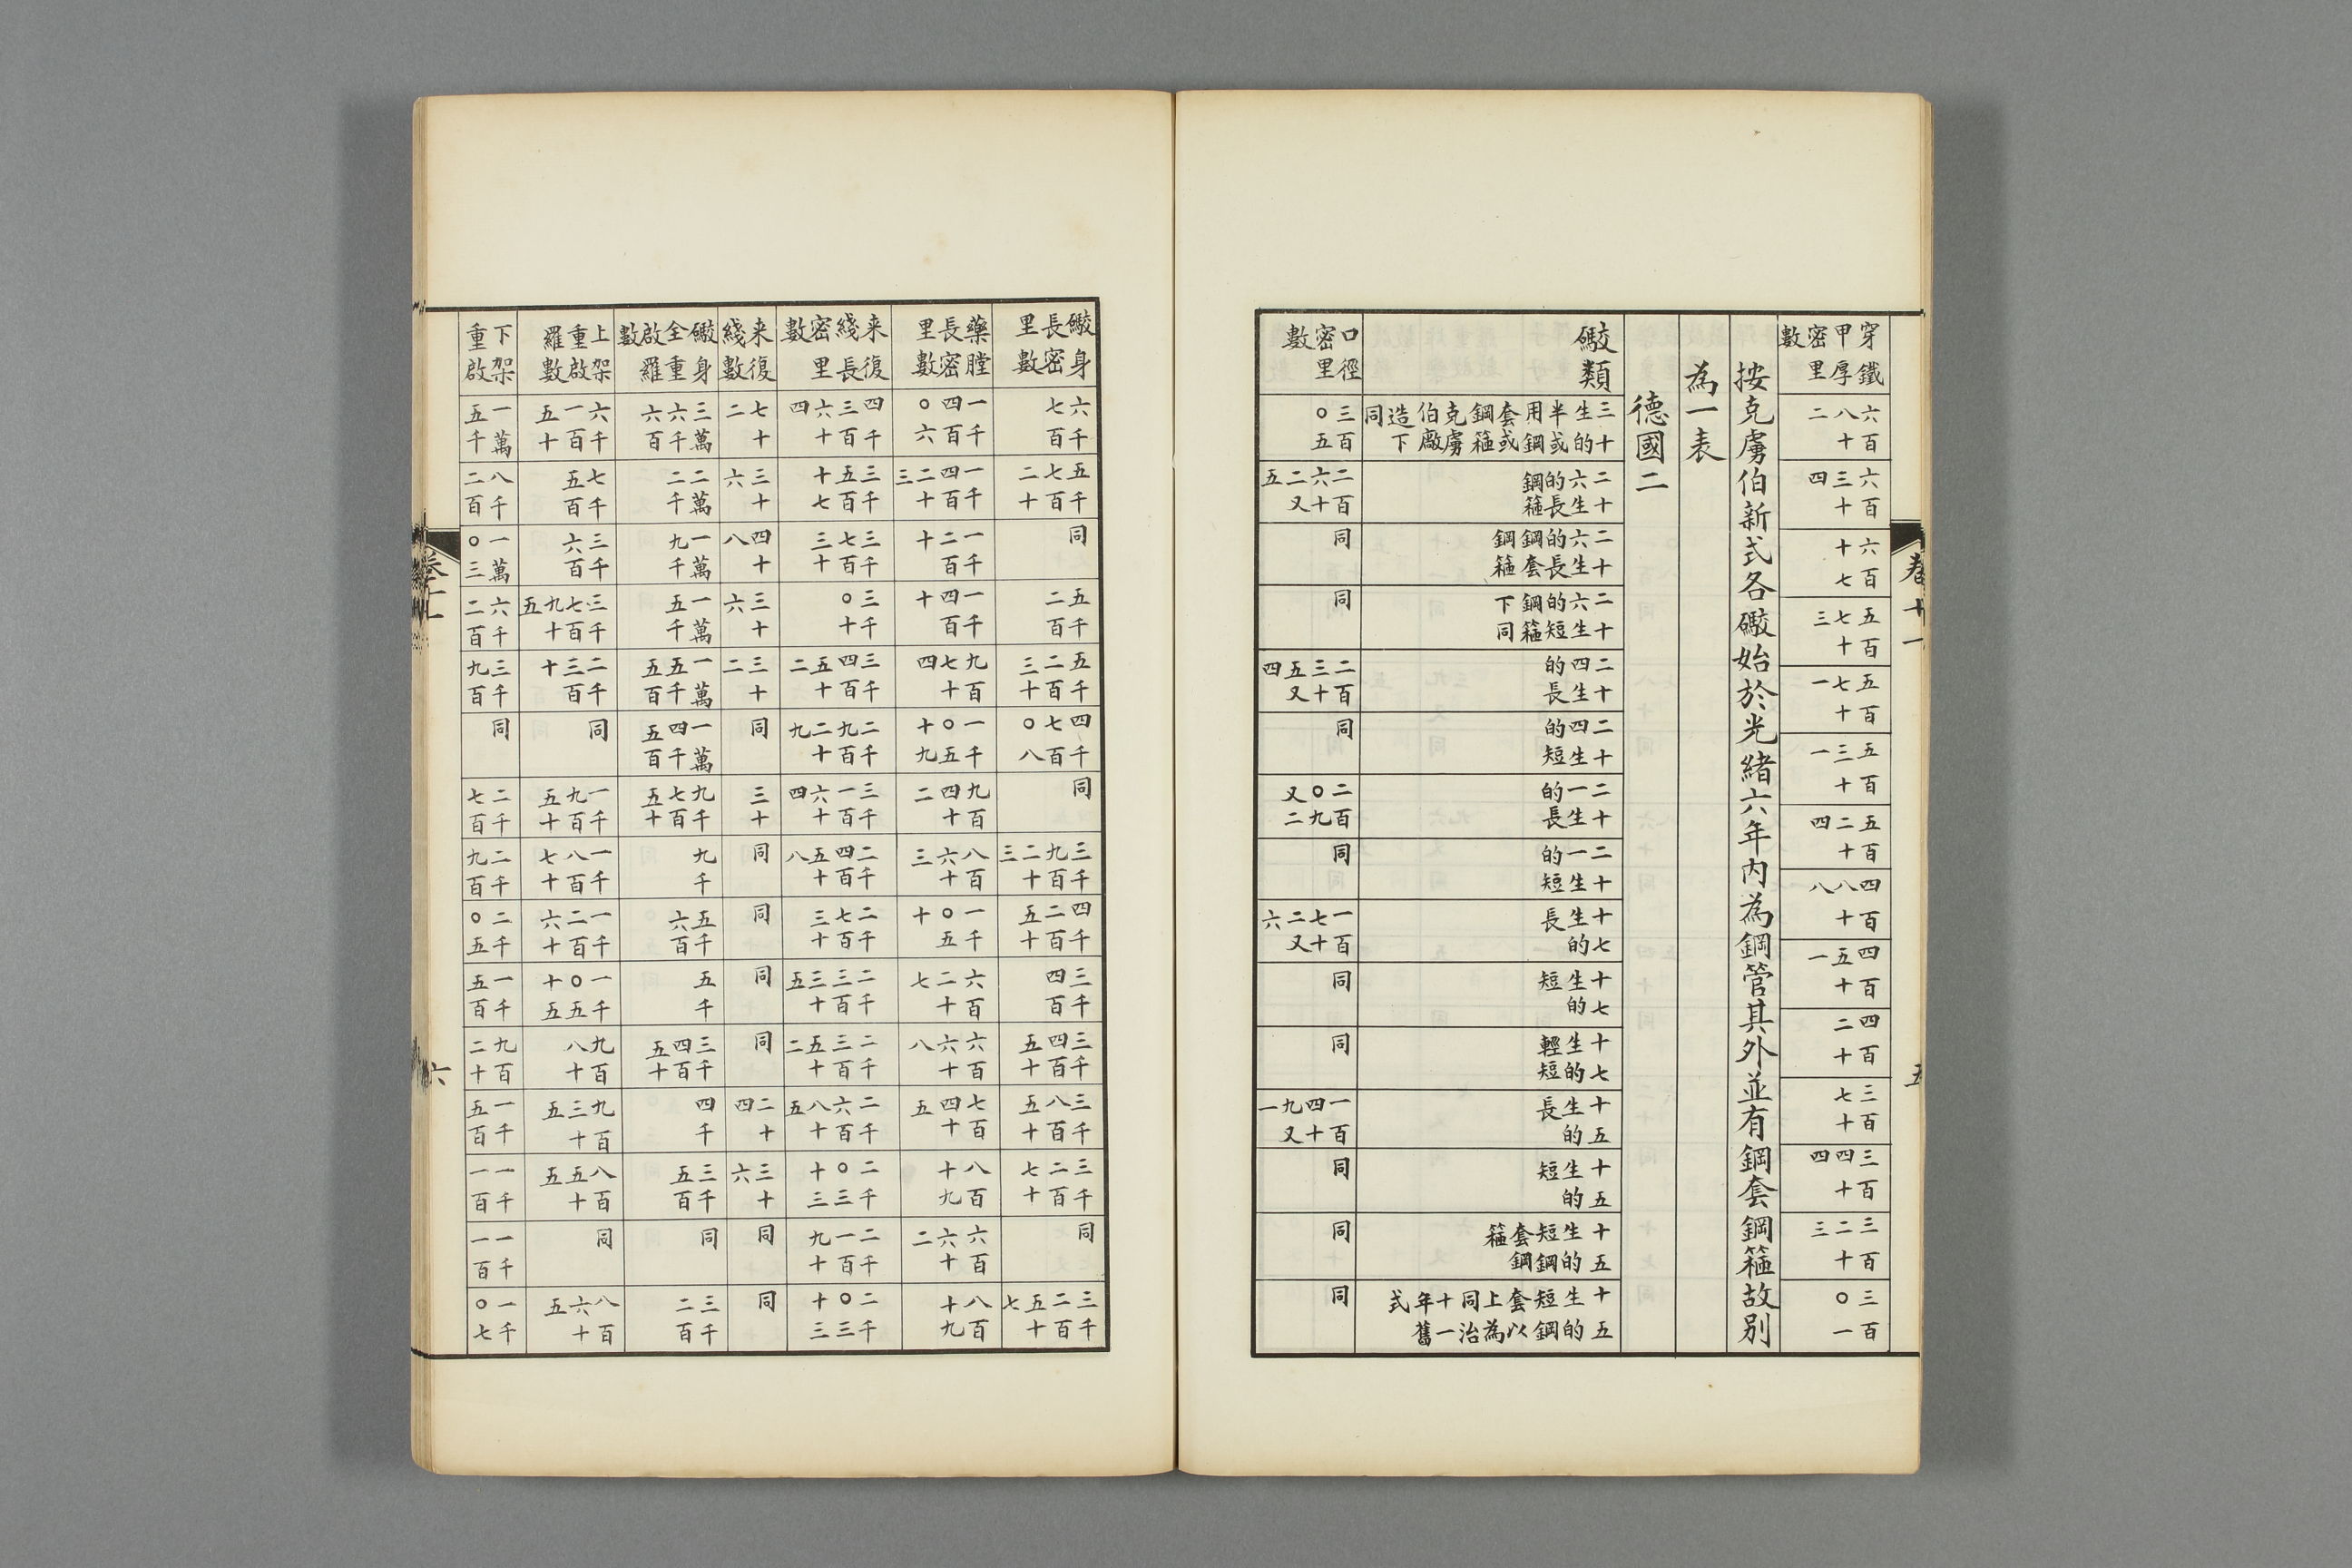 卷十一 五
穿鐵甲厚密里數 六百八十二 六百三十四 六百十七 五百七十三 五百七十一 五百三十一 五百二十四 四百八十八 四百五十一 四百二十 三百七十 三百四十四 三百二十三 三百〇一
按克虜伯新式各礮始於光緒六年內為鋼管其外並有鋼套鋼箍故別
為一表
德國二
礮類 三十生的半或用鋼套或鋼箍克虜伯廠造下同 二十六生的長鋼箍 二十六生的長鋼套鋼箍 二十六生的短鋼箍下同 二十四生的長 二十四生的短 二十一生的長 二十一生的短 十七生的長 十七生的短 十七生的輕短 十五生的長 十五生的短 十五生的短鋼套鋼箍 十五生的短鋼套以上為同治十一年舊式
口徑密里數 三百〇五 二百六十二又五 同 同 二百三十五又四 同 二百〇九又二 同 一百七十二又六 同 同 一百四十九又一 同 同 同
礮身長密里數 六千七百 五千七百二十 同 五千二百 五千二百三十 四千七百〇八 同 三千九百二十三 四千二百五十 三千四百 三千四百五十 三千八百五十 三千二百七十 同 三千二百五十七
藥膛長密里數 一千四百〇六 一千四百二十三 一千二百十 一千四百十 九百七十四 一千〇五十九 九百四十二 八百六十三 一千〇五十 六百二十七 六百六十八 七百四十五 八百十九 六百六十二 八百十九
来復綫長密里數 四千三百六十四 三千五百十七 三千七百三十 三千〇十 三千四百五十二 二千九百二十九 三千一百六十四 二千四百五十八 二千七百三十 二千三百三十五 二千三百五十二 二千六百八十五 二千〇三十三 二千一百九十 二千〇三十三
来復綫數 七十二 三十六 四十八 三十六 三十二 同 三十 同 同 同 同 二十四 三十六 同 同
礮身全重啟羅數 三萬六千六百 二萬二千 一萬九千 一萬五千 一萬五千五百 一萬四千五百 九千七百五十 九千 五千六百 五千 三千四百五十 四千 三千五百 同 三千二百
上架重啟羅數 六千一百五十 七千五百 三千六百 三千七百九十五 二千三百十 同 一千九百五十 一千八百七十 一千二百六十 一千〇五十五 九百八十 九百三十五 八百五十五 同 八百六十五
下架重啟 一萬五千 八千二百 一萬〇三 六千二百 三千九百 同 二千七百 二千九百 二千〇五 一千五百 九百二十 一千五百 一千一百 一千一百 一千〇七
六